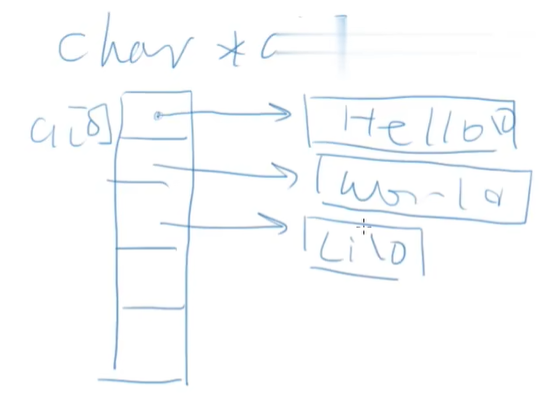 char *a
a[0]
Hello\0
World
Li\0